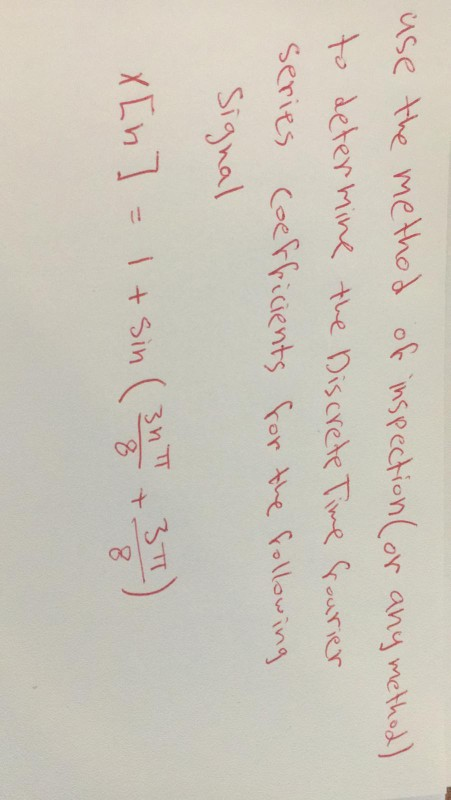 use the method of inspection (or any method)
to determine the Discrete Time fourier
series coefficients for the following
Signal
x[n] = 1 + sin ( 3nπ/8 + 3π/8 )